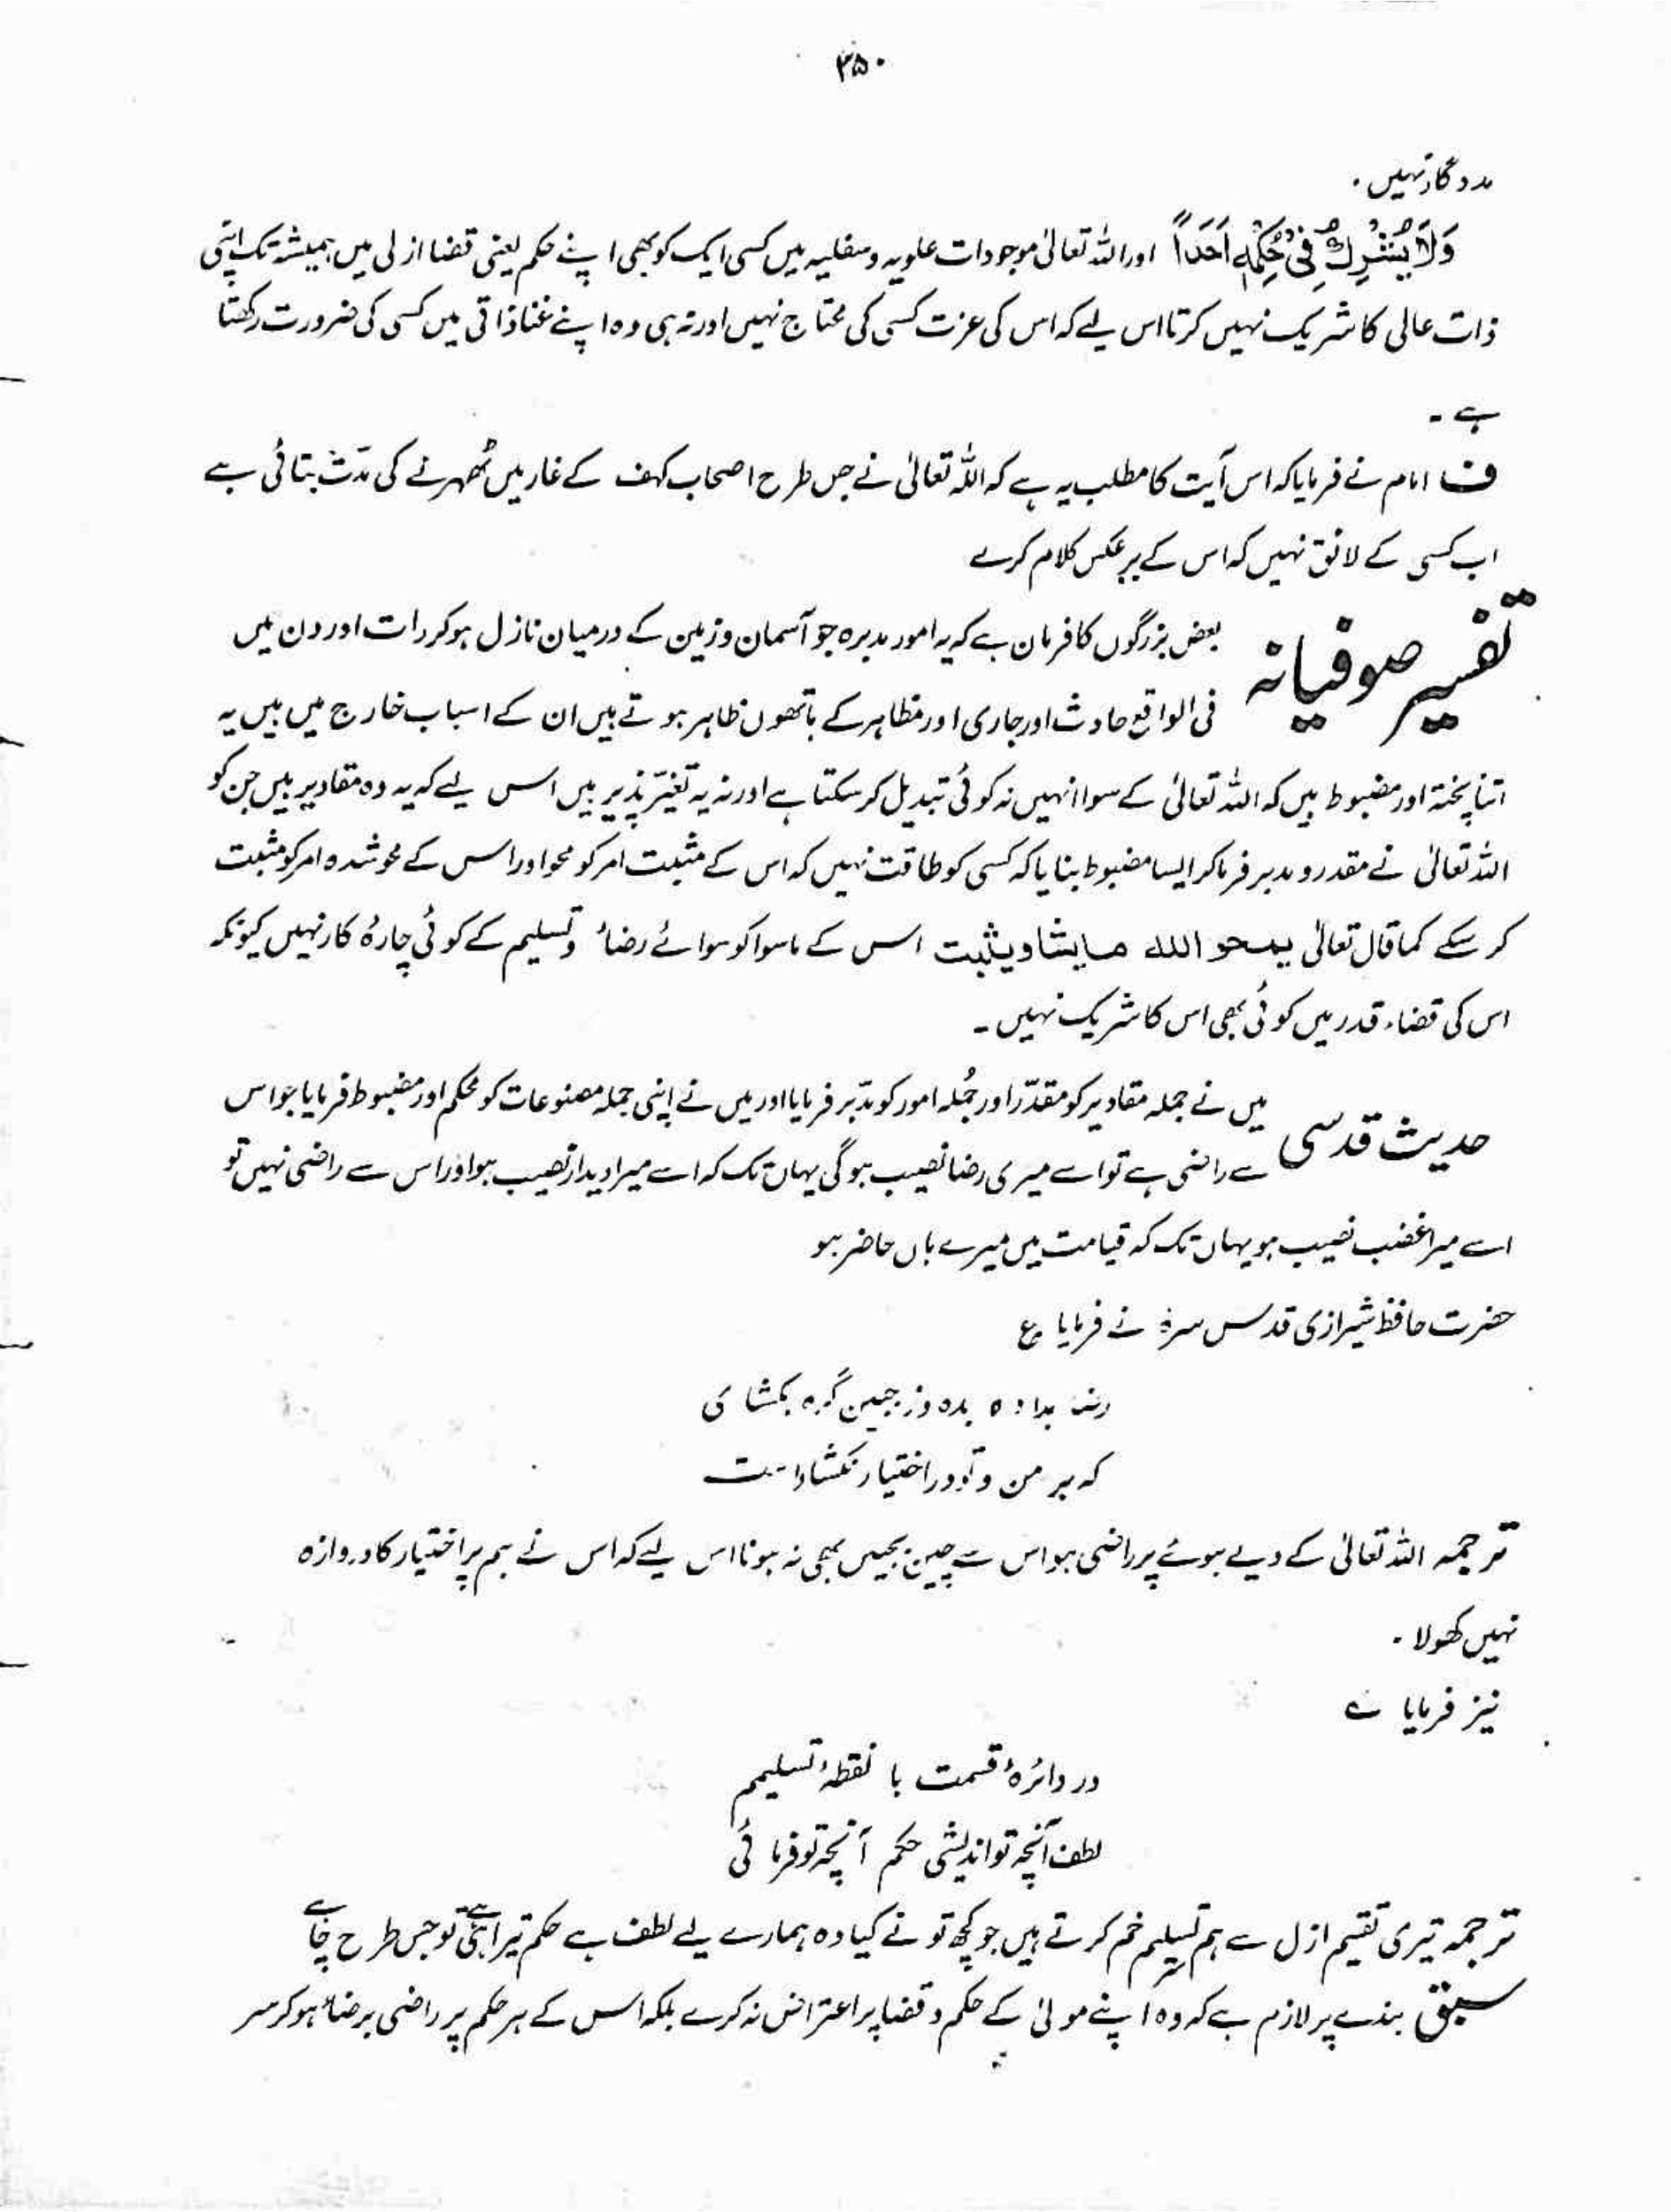 ۳۵۰
مددگار نہیں ۔
وَلَا یُشْرِكُ فِیْ حُكْمِهٖ اَحَداً اور اللہ تعالیٰ موجودات علویہ و سفلیہ میں کسی ایک کو بھی اپنے حکم یعنی قضا ازلی میں ہمیشہ تک اپنی
ذات عالی کا شریک نہیں کرتا اس لیے کہ اس کی عزت کسی کی محتاج نہیں اور نہ ہی وہ اپنے غنا ذاتی میں کسی کی ضرورت رکھتا
ہے ۔
ف امام نے فرمایا کہ اس آیت کا مطلب یہ ہے کہ اللہ تعالیٰ نے جس طرح اصحاب کہف کے غار میں ٹھہرنے کی مدّت بتائی ہے
اب کسی کے لائق نہیں کہ اس کے برعکس کلام کرے
تفسیر صوفیانہ بعض بزرگوں کا فرمان ہے کہ یہ امور مدبرہ جو آسمان و زمین کے درمیان نازل ہوکر رات اور دن میں
فی الواقع حادث اور جاری اور مظاہر کے ہاتھوں ظاہر ہوتے ہیں ان کے اسباب خارج میں ہیں یہ
اتنا پختہ اور مضبوط ہیں کہ اللہ تعالیٰ کے سوا انہیں نہ کوئی تبدیل کرسکتا ہے اور نہ یہ تغیّر پذیر ہیں اس لیے کہ یہ وہ مقادیر ہیں جن کو
اللہ تعالیٰ نے مقدر و مدبر فرماکر ایسا مضبوط بنایا کہ کسی کو طاقت نہیں کہ اس کے مثبت امر کو محو اور اس کے محوشدہ امر کو مثبت
کر سکے کما قال تعالیٰ یمحو اللہ مایشاء ویثبت اس کے ماسوا کو سوائے رضاء و تسلیم کے کوئی چارۂ کار نہیں کیونکہ
اس کی قضاء قدر میں کوئی بھی اس کا شریک نہیں ۔
حدیث قدسی میں نے جملہ مقادیر کو مقدّر اور جُملہ امور کو مدّبر فرمایا اور میں نے اپنی جملہ مصنوعات کو محکم اور مضبوط فرمایا جو اس
سے راضی ہے تو اسے میری رضا نصیب ہوگی یہاں تک کہ اسے میرا دیدار نصیب ہو اور اس سے راضی نہیں تو
اسے میرا غضب نصیب ہو یہاں تک کہ قیامت میں میرے ہاں حاضر ہو
حضرت حافظ شیرازی قدس سرہٗ نے فرمایا ع
رضا بدادہ بدہ وز جبیں گرہ بکشای
کہ بر من و تو در اختیار نکشادست
ترجمہ اللہ تعالیٰ کے دیے ہوئے پر راضی ہو اس سے چین بجبیں بھی نہ ہونا اس لیے کہ اس نے ہم پر اختیار کا دروازہ
نہیں کھولا ۔
نیز فرمایا ے
در دائرۂ قسمت با نقطۂ تسلیمم
لطف آنچہ تو اندیشی حکم آنچہ تو فرمائی
ترجمہ تیری تقسیم ازل سے ہم تسلیم خم کرتے ہیں جو کچھ تو نے کیا وہ ہمارے لیے لطف ہے حکم تیرا ہی ہے تو جس طرح چاہے
سبق بندے پر لازم ہے کہ وہ اپنے مولیٰ کے حکم و قضا پر اعتراض نہ کرے بلکہ اس کے ہر حکم پر راضی برضاء ہوکر سر